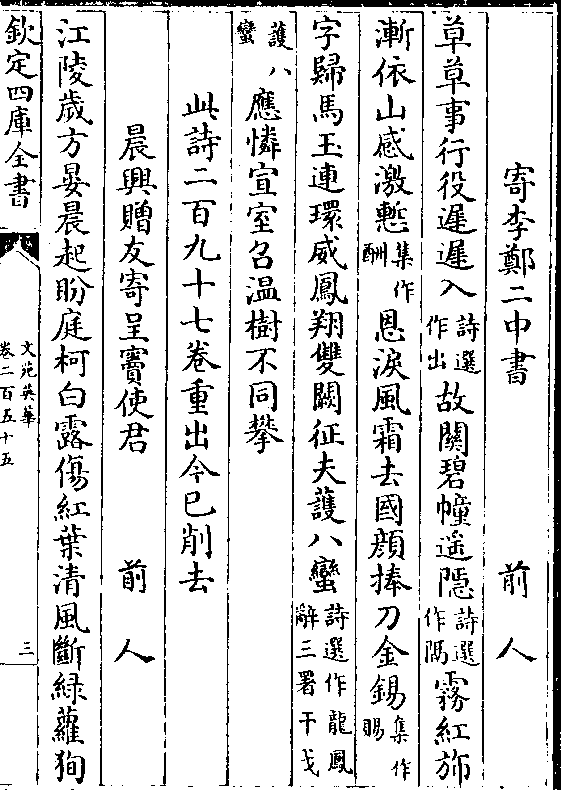 寄李鄭二中書　前人
草草事行役遲遲入詩選作出故關碧幢遥隱詩選作隅霧紅斾
漸依山感激慙集作酬恩淚風霜去國顔捧刀金錫集作賜
字歸馬玉連環威鳳翔雙闕征夫護八蠻詩選作龍鳳辭三署干戈
護八蠻應憐宣室召温樹不同攀
此詩二百九十七卷重出今已削去
晨興贈友寄呈竇使君　前人
江陵歲方晏晨起盼庭柯白露傷紅葉清風斷緑蘿狥
欽定四庫全書
文苑英華
卷二百五十五
三